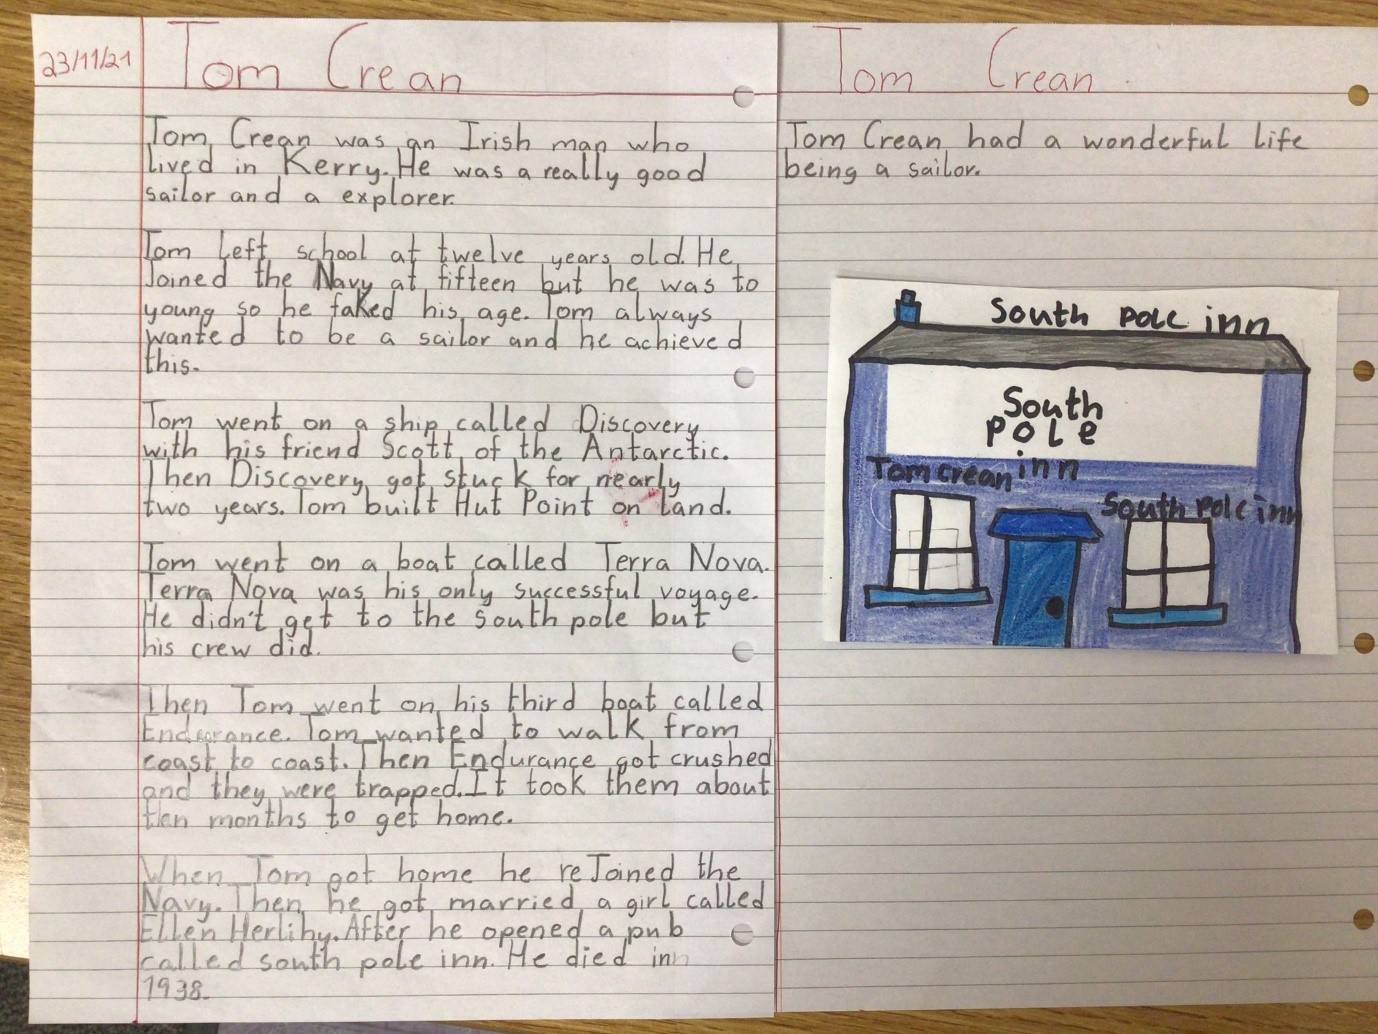 23/11/21
Tom Crean
Tom Crean was an Irish man who
lived in Kerry. He was a really good
sailor and a explorer.
Tom left school at twelve years old. He
Joined the Navy at fifteen but he was to
young so he faked his age. Tom always
wanted to be a sailor and he achieved
this.
Tom went on a ship called Discovery
with his friend Scott of the Antarctic.
Then Discovery got stuck for nearly
two years. Tom built Hut Point on land.
Tom went on a boat called Terra Nova.
Terra Nova was his only successful voyage.
He didn't get to the south pole but
his crew did.
Then Tom went on his third boat called
Tom wanted to walk from
coast to coast. Then Endurance got crushed
and they were trapped. It took them about
months to get home.
When Tom got home he reJoined the
Navy. Then he got married a girl called
Ellen Herlihy. After he opened a pub
called south pole inn. He died inn
1938.
Tom Crean
Tom Crean had a wonderful life
being a sailor.
South pole inn
South
pole
inn
Tom crean
South pole inn